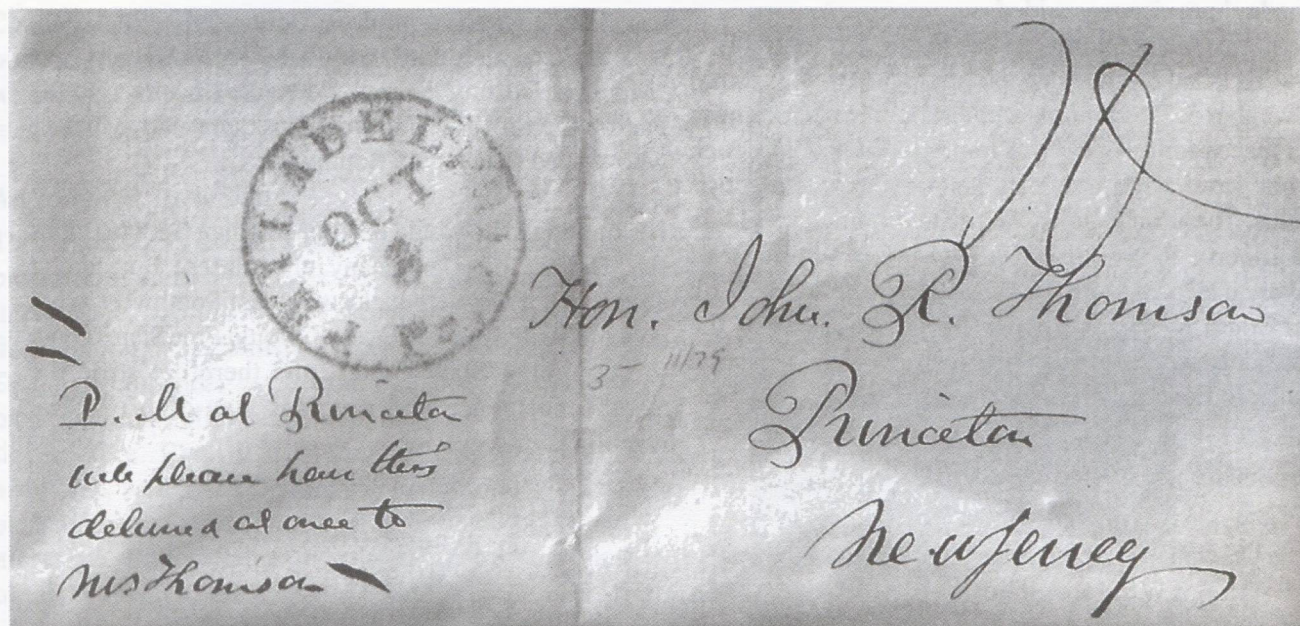 PHILADELPHIA Pa.
OCT
Hon. John. R. Thomson
3 - 11/79
Princeton
New Jersey
P. M at Princeton
will please have this
delivered at once to
Mrs Thomson